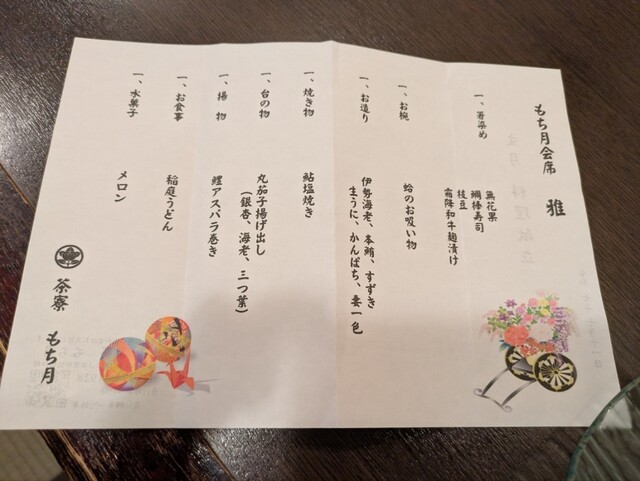 もち月会席 雅
一、箸染め
無花果
鯛棒寿司
枝豆
霜降和牛麹漬け
一、お椀
蛤のお吸い物
一、お造り
伊勢海老、本鮪、すずき
生うに、かんぱち、妻一色
一、焼き物
鮎塩焼き
一、台の物
丸茄子揚げ出し
(銀杏、海老、三つ葉)
一、揚物
鱧アスパラ巻き
一、お食事
稲庭うどん
一、水菓子
メロン
茶寮 もち月